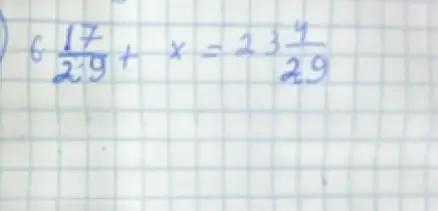 ) 6 17/29 + x = 23 4/29